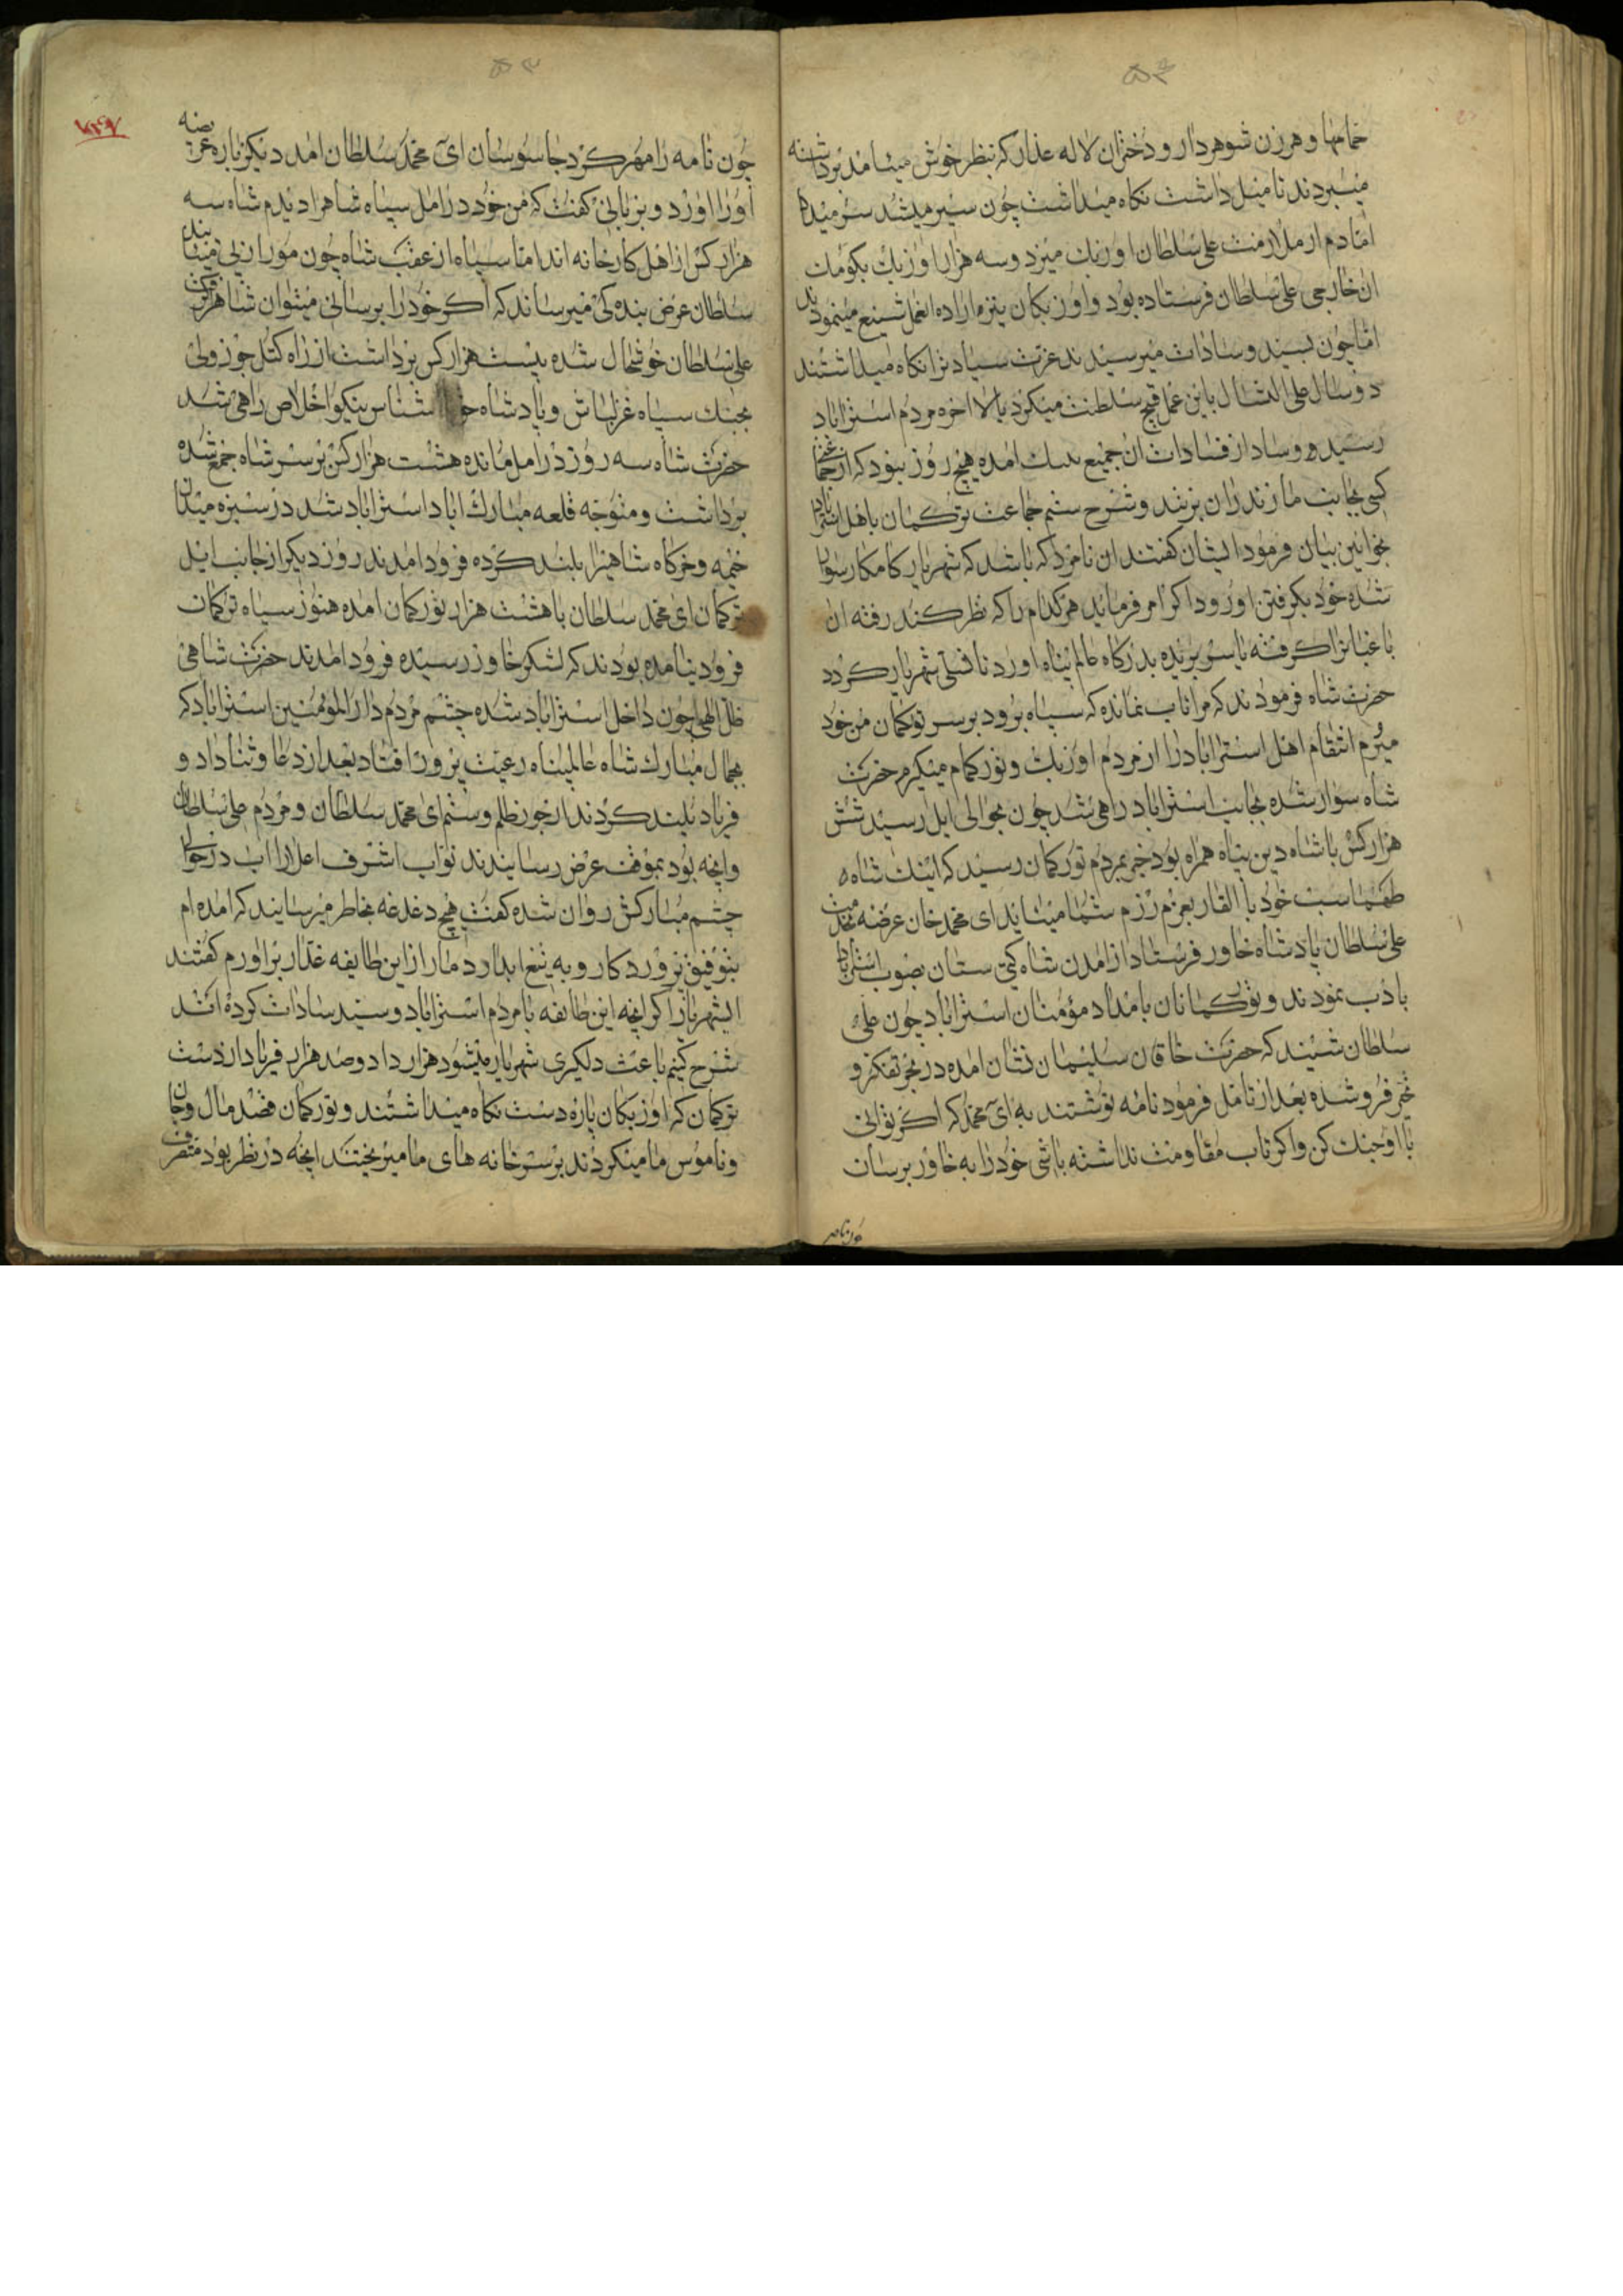 حمامها و هر زن شوهردار و دختران لاله عذار که بنظر خوش میامد برداشته
میبردند تا میل داشت نگاه میداشت چون سیر میشد سر میداد
اما دم از ملازمت علی سلطان اوزبک میزد و سه هزار اوزبک بکومک
ان خارجی علی سلطان فرستاده بود و اوزبکان نیز ماراده انعمل شنیع مینمودند
اما چون بسید و سادات میرسیدند عزت سیادترا نگاه میداشتند
دو سال علی الدسال باین عمل قبیح سلطنت میکرد بالاخره مردم استراباد
رسید و و ساد از فسادات ان جمیع بتنک امده هیچ روز نبود که از
کسی بجانب مازندران نریند و شرح ستم جماعت ترکمان باهل استراباد
بخوانین بیان فرمود ایشان گفتند ان نامرد که باشد که شهریار کامکار سوار
شده خود بگرفتن او رود اگر امر فرماید هر کدام را که نظر کند رفته ان
باغیانرا گرفته یا سر بریده بدرگاه عالم پناه اورد تا تسلی شهریار گردد
حضرت شاه فرمودند که مرا تاب نمانده که سپاه برود بر سر ترکمان من خود
میروم انتقام اهل استراباد را از مردم اوزبک و تورکمان میگیرم حضرت
شاه سوار شده بجانب استراباد راهی شد چون بحوالی ابل رسید شش
هزار کس با شاه دین پناه همراه بود خبر بمردم تورکمان رسید که اینک شاه
طهماسب خود با القار بعزم رزم شما میاید ای محمد خان عرضه بخدمت
علی سلطان پادشاه خاور فرستاد از امدن شاه گیتی ستان بصوب استراباد
بادب نمودند و تورکمانان بامداد مؤمنان استراباد چون علی
سلطان شنید که حضرت خاقان سلیمان نشان امده در بحر تفکر و
تحیر فرو شده بعد از تامل فرمود نامه نوشتند به ای محمد که اگر توانی
با او جنک کن و اگر تاب مقاومت نداشته باشی خود را به خاور برسان
چون نامه
چون نامه را مهر کرد جاسوسان ای محمد سلطان امد دیگر باره عریضه
اورا اورد و بزبانی گفت که من خود در امل سپاه شاهرا دیدم شاه سه
هزار کس از اهل کارخانه اند اما سپاه از عقب شاه چون مور از پی میایند
سلطان عرض بنده گی میرساند که اگر خود را برسانی میتوان شاهرا گرفت
علی سلطان خوشحال شده بیست هزار کس برداشت از راه کتل جوزولی
بجنک سپاه غزلباش و پادشاه شناس نیکو اخلاص راهی شد
حضرت شاه سه روز در امل مانده هشت هزار کس بر سر شاه جمع شده
برداشت و متوجه قلعه مبارک اباد استراباد شد در سبزه میدان
خیمه و خرگاه شاهیرا بلند کرده فرود امدند روز دیگر از جانب ایل
ترکمان ای محمد سلطان با هشت هزار تورکمان امده هنوز سپاه ترکمان
فرود نیامده بودند که لشکر خاور رسیده فرود امدند حضرت شاهی
ظل الهی چون داخل استراباد شده چشم مردم دار المؤمنین استراباد که
بجمال مبارک شاه عالمپناه رعیت پرور افتاد بعد از دعا و ثنا داد و
فریاد بلند کردند از جور ظلم و ستم ای محمد سلطان و مردم علی سلطان
وانچه بود بموقف عرض رسانیدند نواب اشرف اعلارا اب در حوالی
چشم مبارکش روان شده گفت هیچ دغدغه بخاطر میرسانید که امده ام
بتوفیق پروردکار و به تیغ ابدار دمار از این طایفه غدار براورم گفتند
ایشهریار اگر انچه این طایفه با مردم استراباد و سید سادات کرده اند
شرح کنیم باعث دلگیری شهریار میشود هزار داد و صد هزار فریاد از دست
ترکمان که اوزبکان پاره دست نگاه میداشتند و تورکمان قصد مال و جان
و ناموس ما میکردند بر سر خانه های ما میریختند انچه در نظر بود متصرف